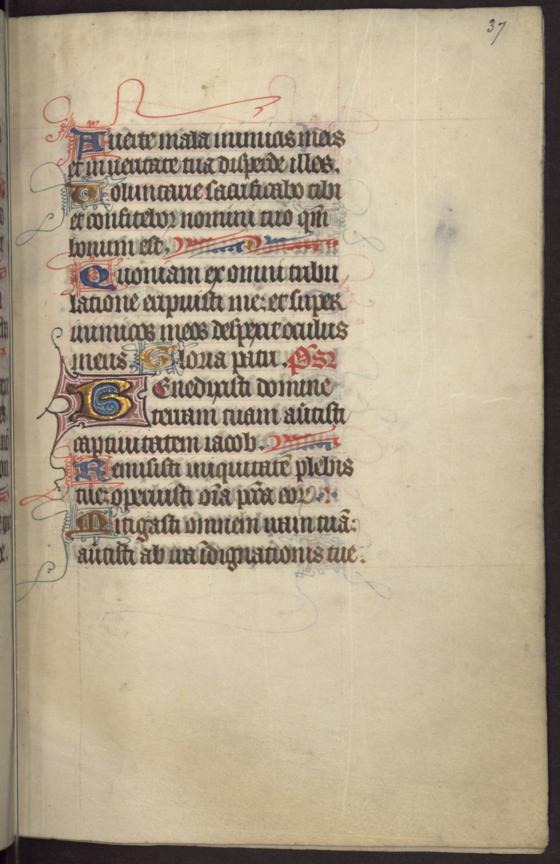 37
Auerte mala inimicis meis
et in ueritate tua disperde illos.
Uoluntarie sacrificabo tibi
et confitebor nomini tuo qm̄
bonum est.
Quoniam ex omni tribu
latione eripuisti me: et super
inimicos meos despexit oculus
meus. Gloria patri. Ps
Benedixisti domine
terram tuam auertisti
captiuitatem iacob.
Remisisti iniquitatē plebis
tue: operuisti oīa pcc̄a eor.
Mitigasti omnem iram tuā:
auertisti ab ira īdignationis tue.